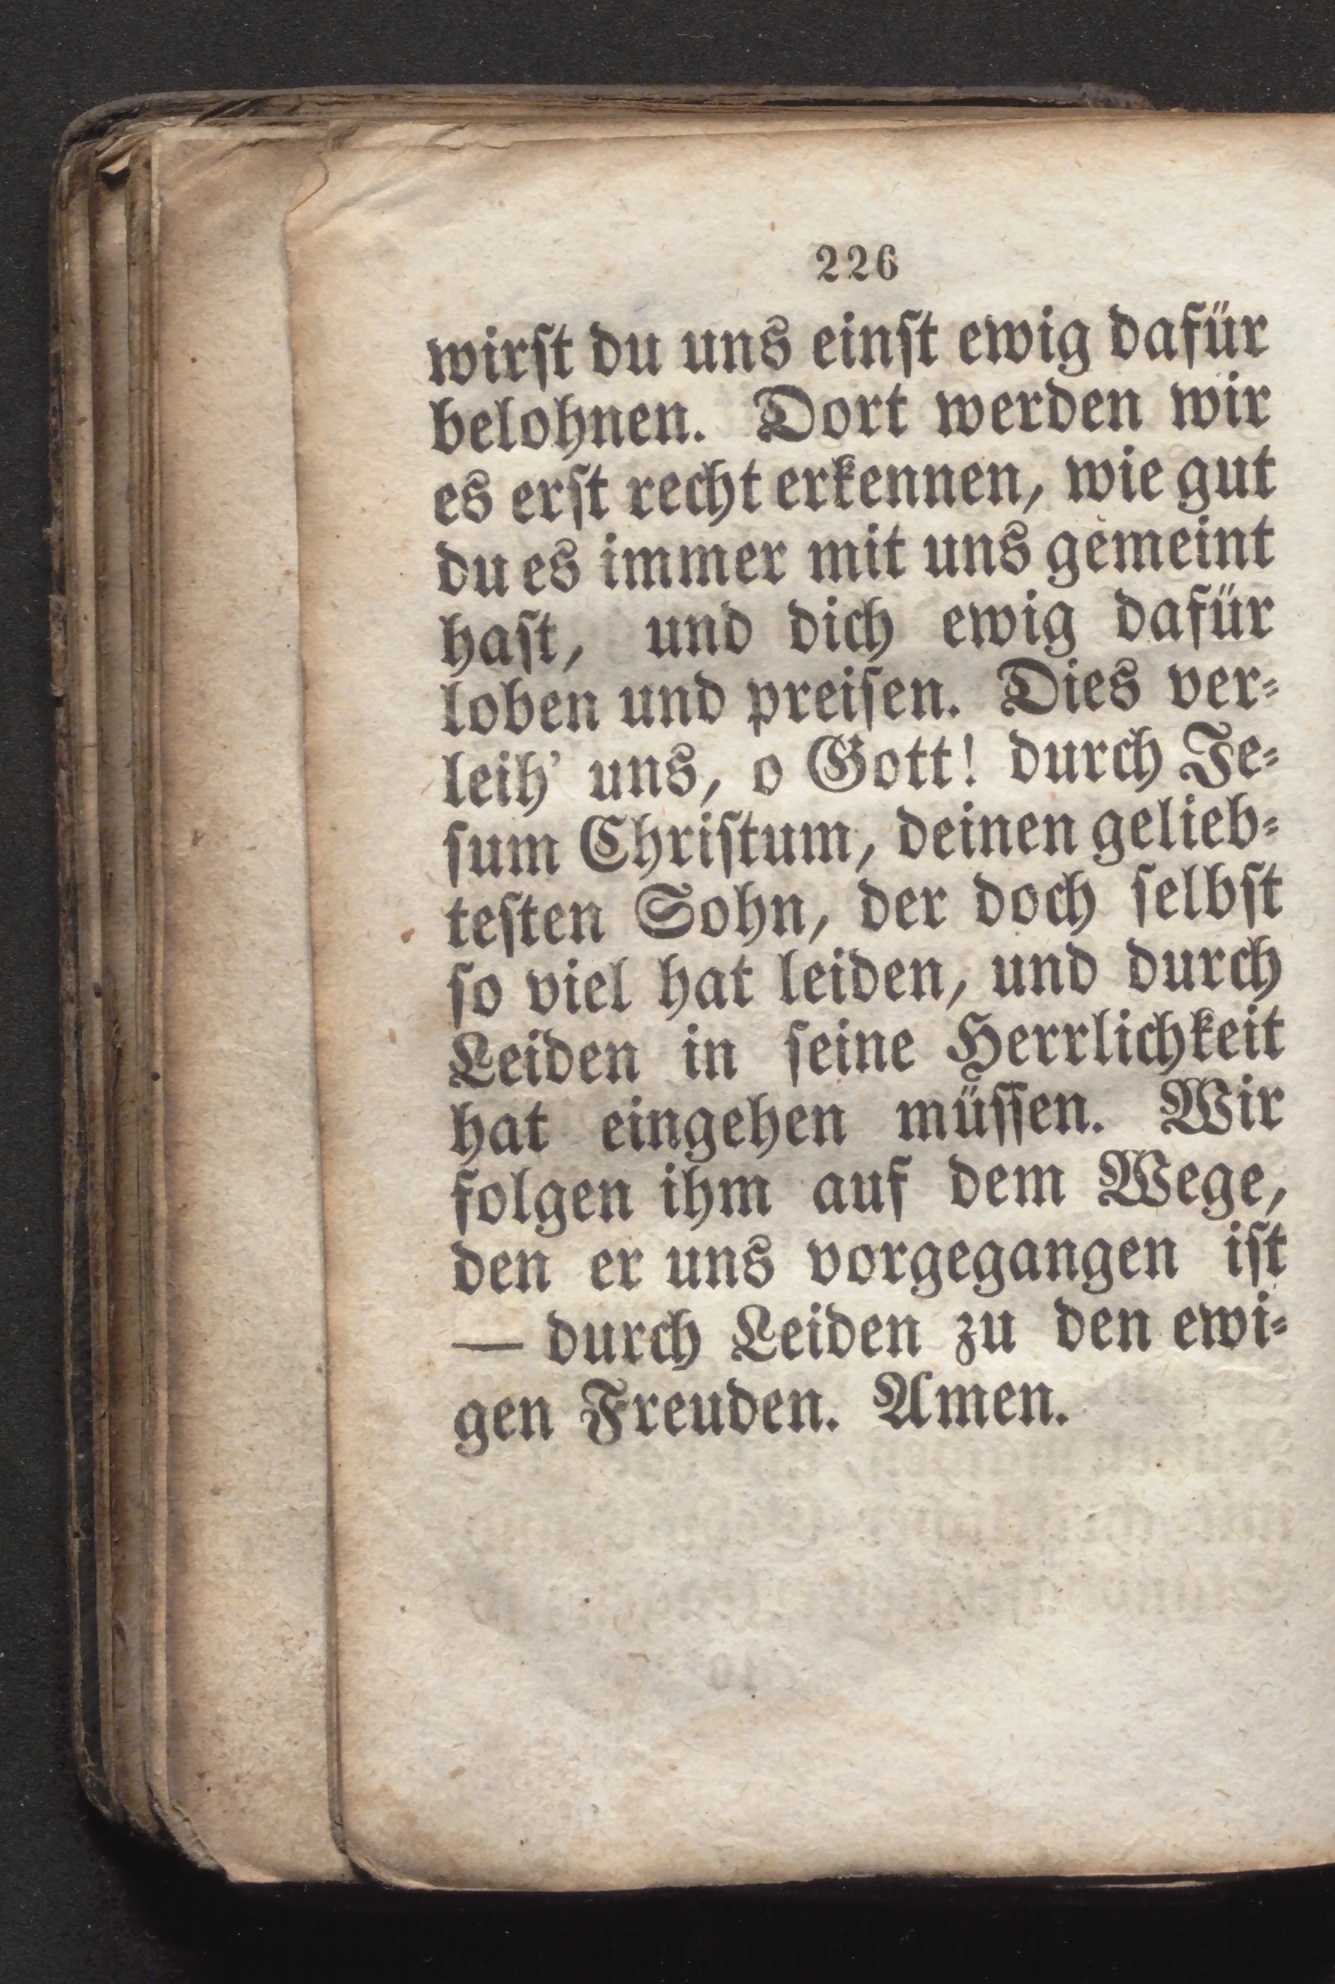 226
wirſt du uns einſt ewig dafür
belohnen. Dort werden wir
es erſt recht erkennen, wie gut
du es immer mit uns gemeint
haſt, und dich ewig dafür
loben und preiſen. Dies ver⸗
leih' uns, o Gott! durch Je⸗
ſum Chriſtum, deinen gelieb⸗
teſten Sohn, der doch ſelbſt
ſo viel hat leiden, und durch
Leiden in ſeine Herrlichkeit
hat eingehen müſſen. Wir
folgen ihm auf dem Wege,
den er uns vorgegangen iſt
— durch Leiden zu den ewi⸗
gen Freuden. Amen.